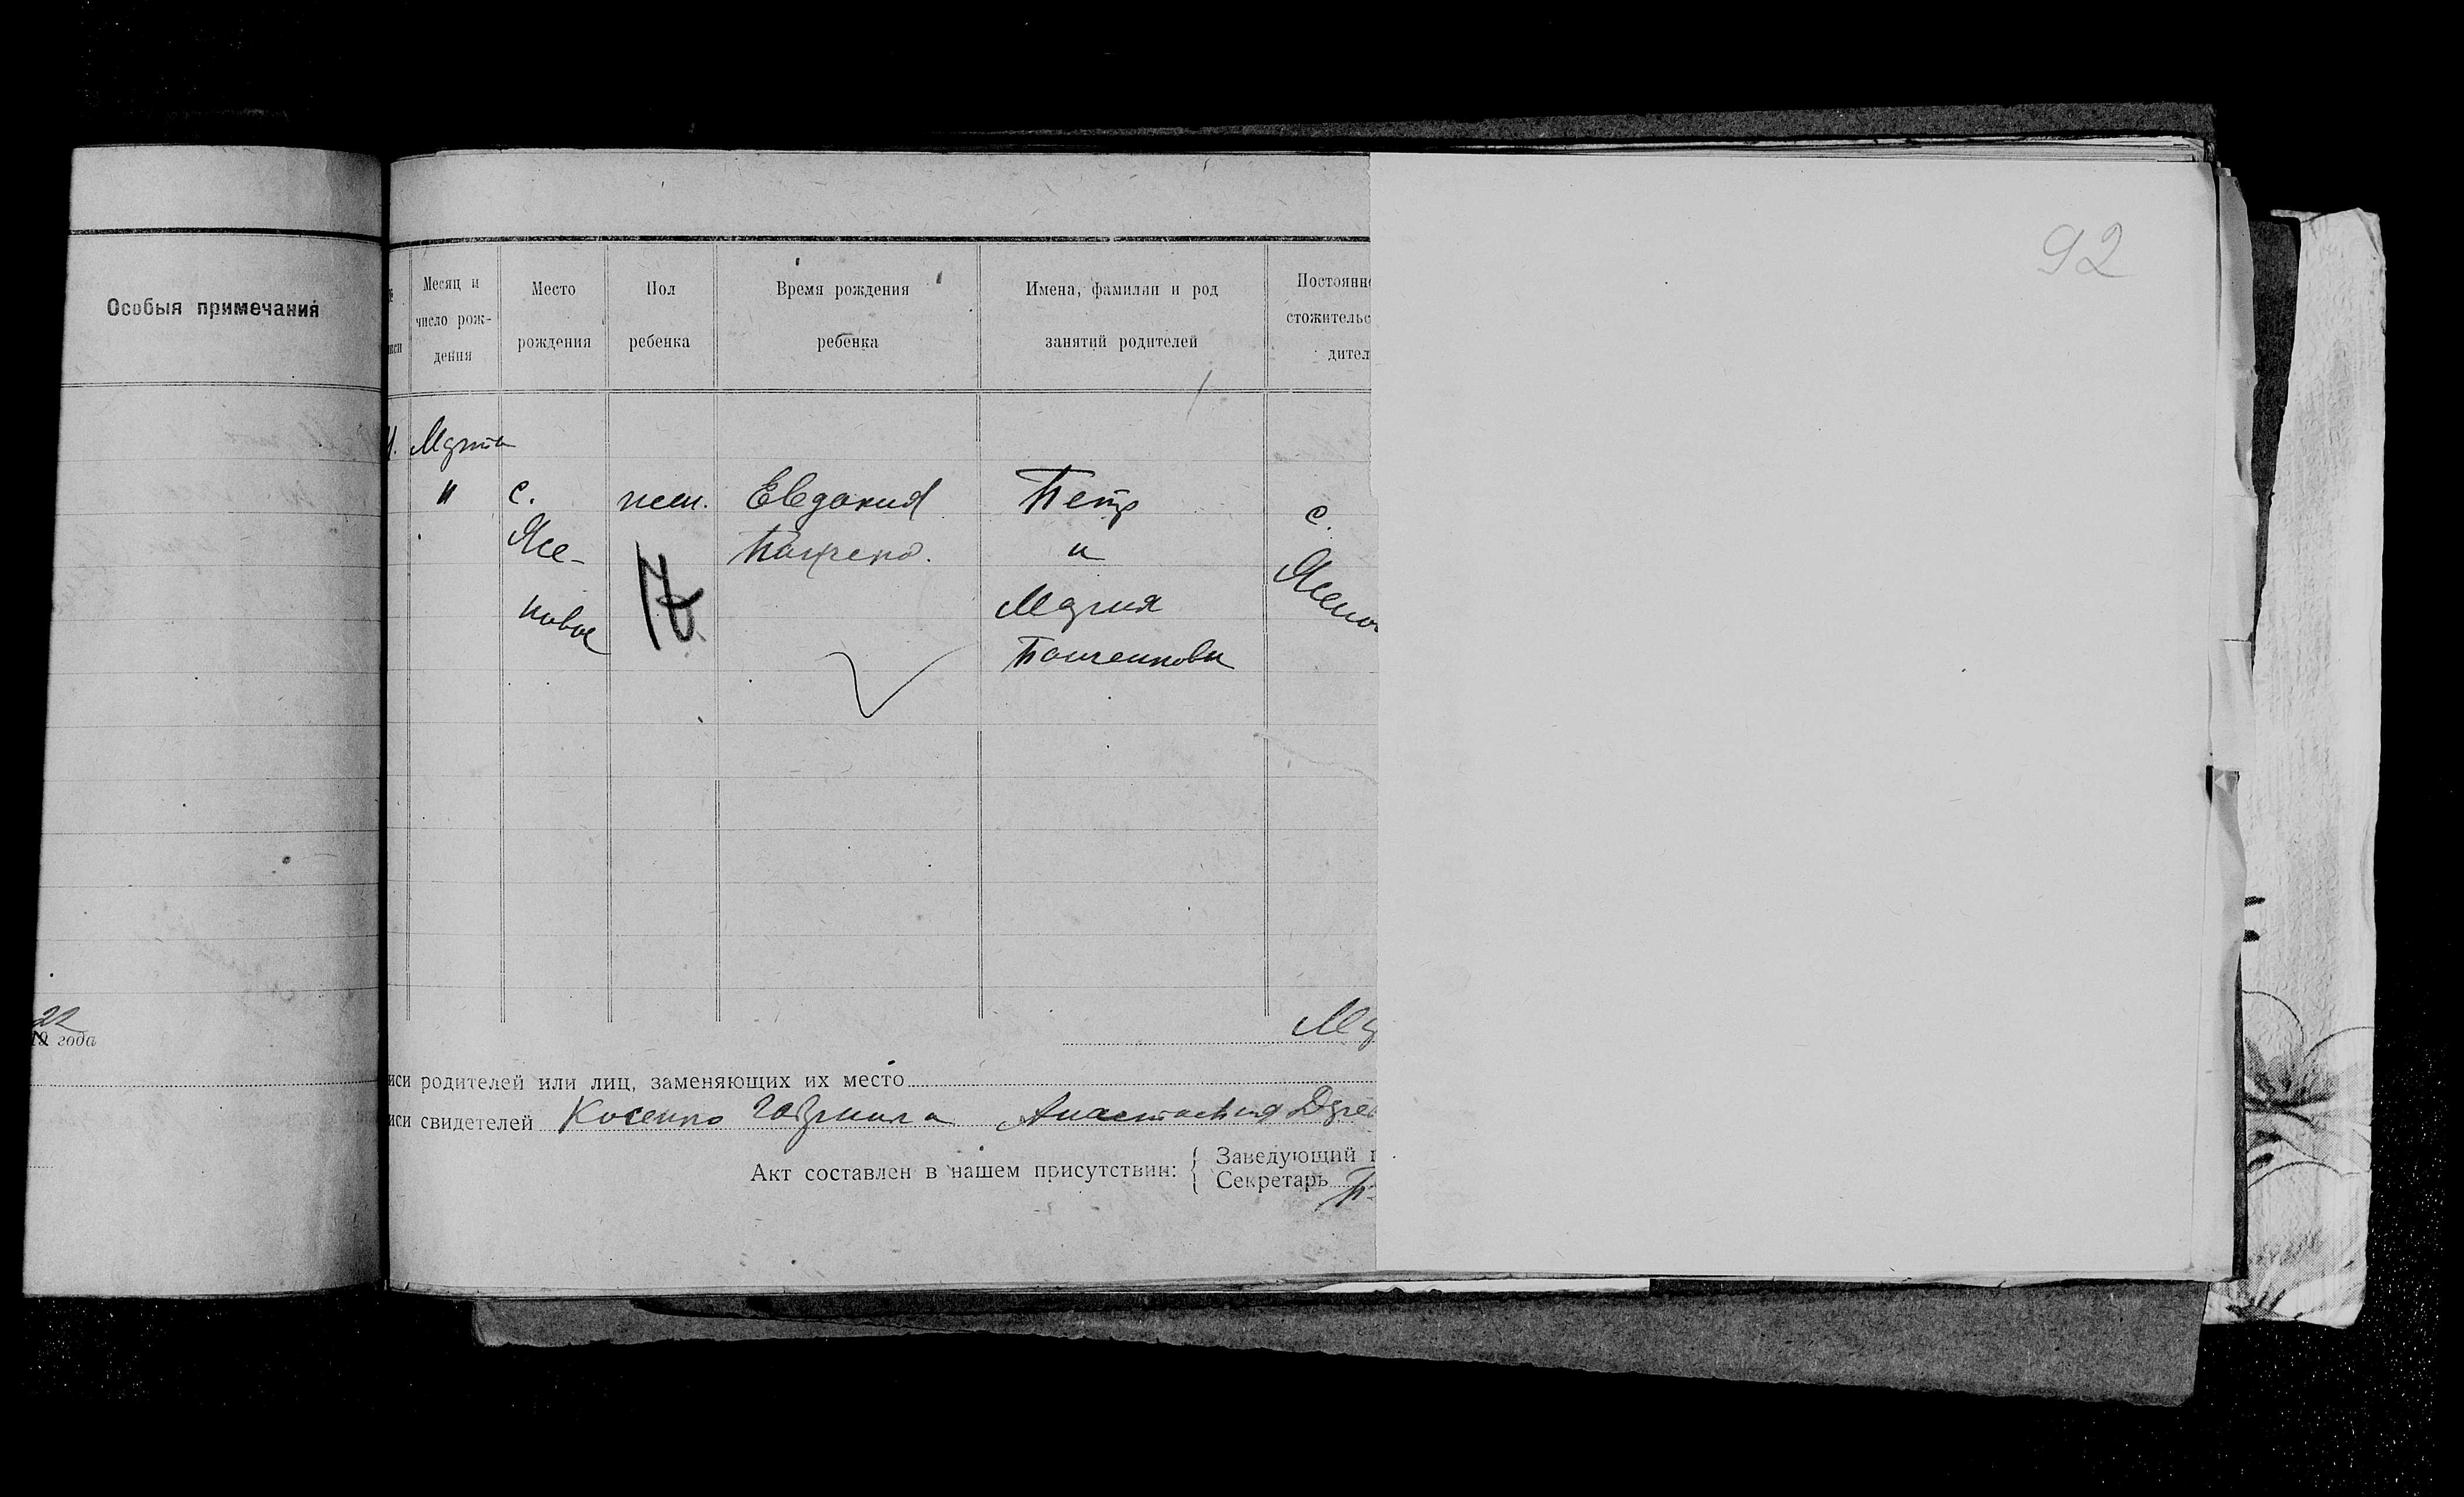 92
Особыя примечания
Месяц и
число рож-
дения
Место
рождения
Пол
ребенка
Время рождения
ребенка
Имена, фамилии и род
занятий родителей
Постоянн
стожительс
дител
Марта
"
с.
Ясе-
новое
жен.
Евдокия
Петр
и
Мария
с.
Ясено
22
19 года
Ма
иси родителей или лиц, заменяющих их место
иси свидетелей Косенко Гавриила Анастасия
Акт составлен в нашем присутствии:
Заведующий
Секретарь